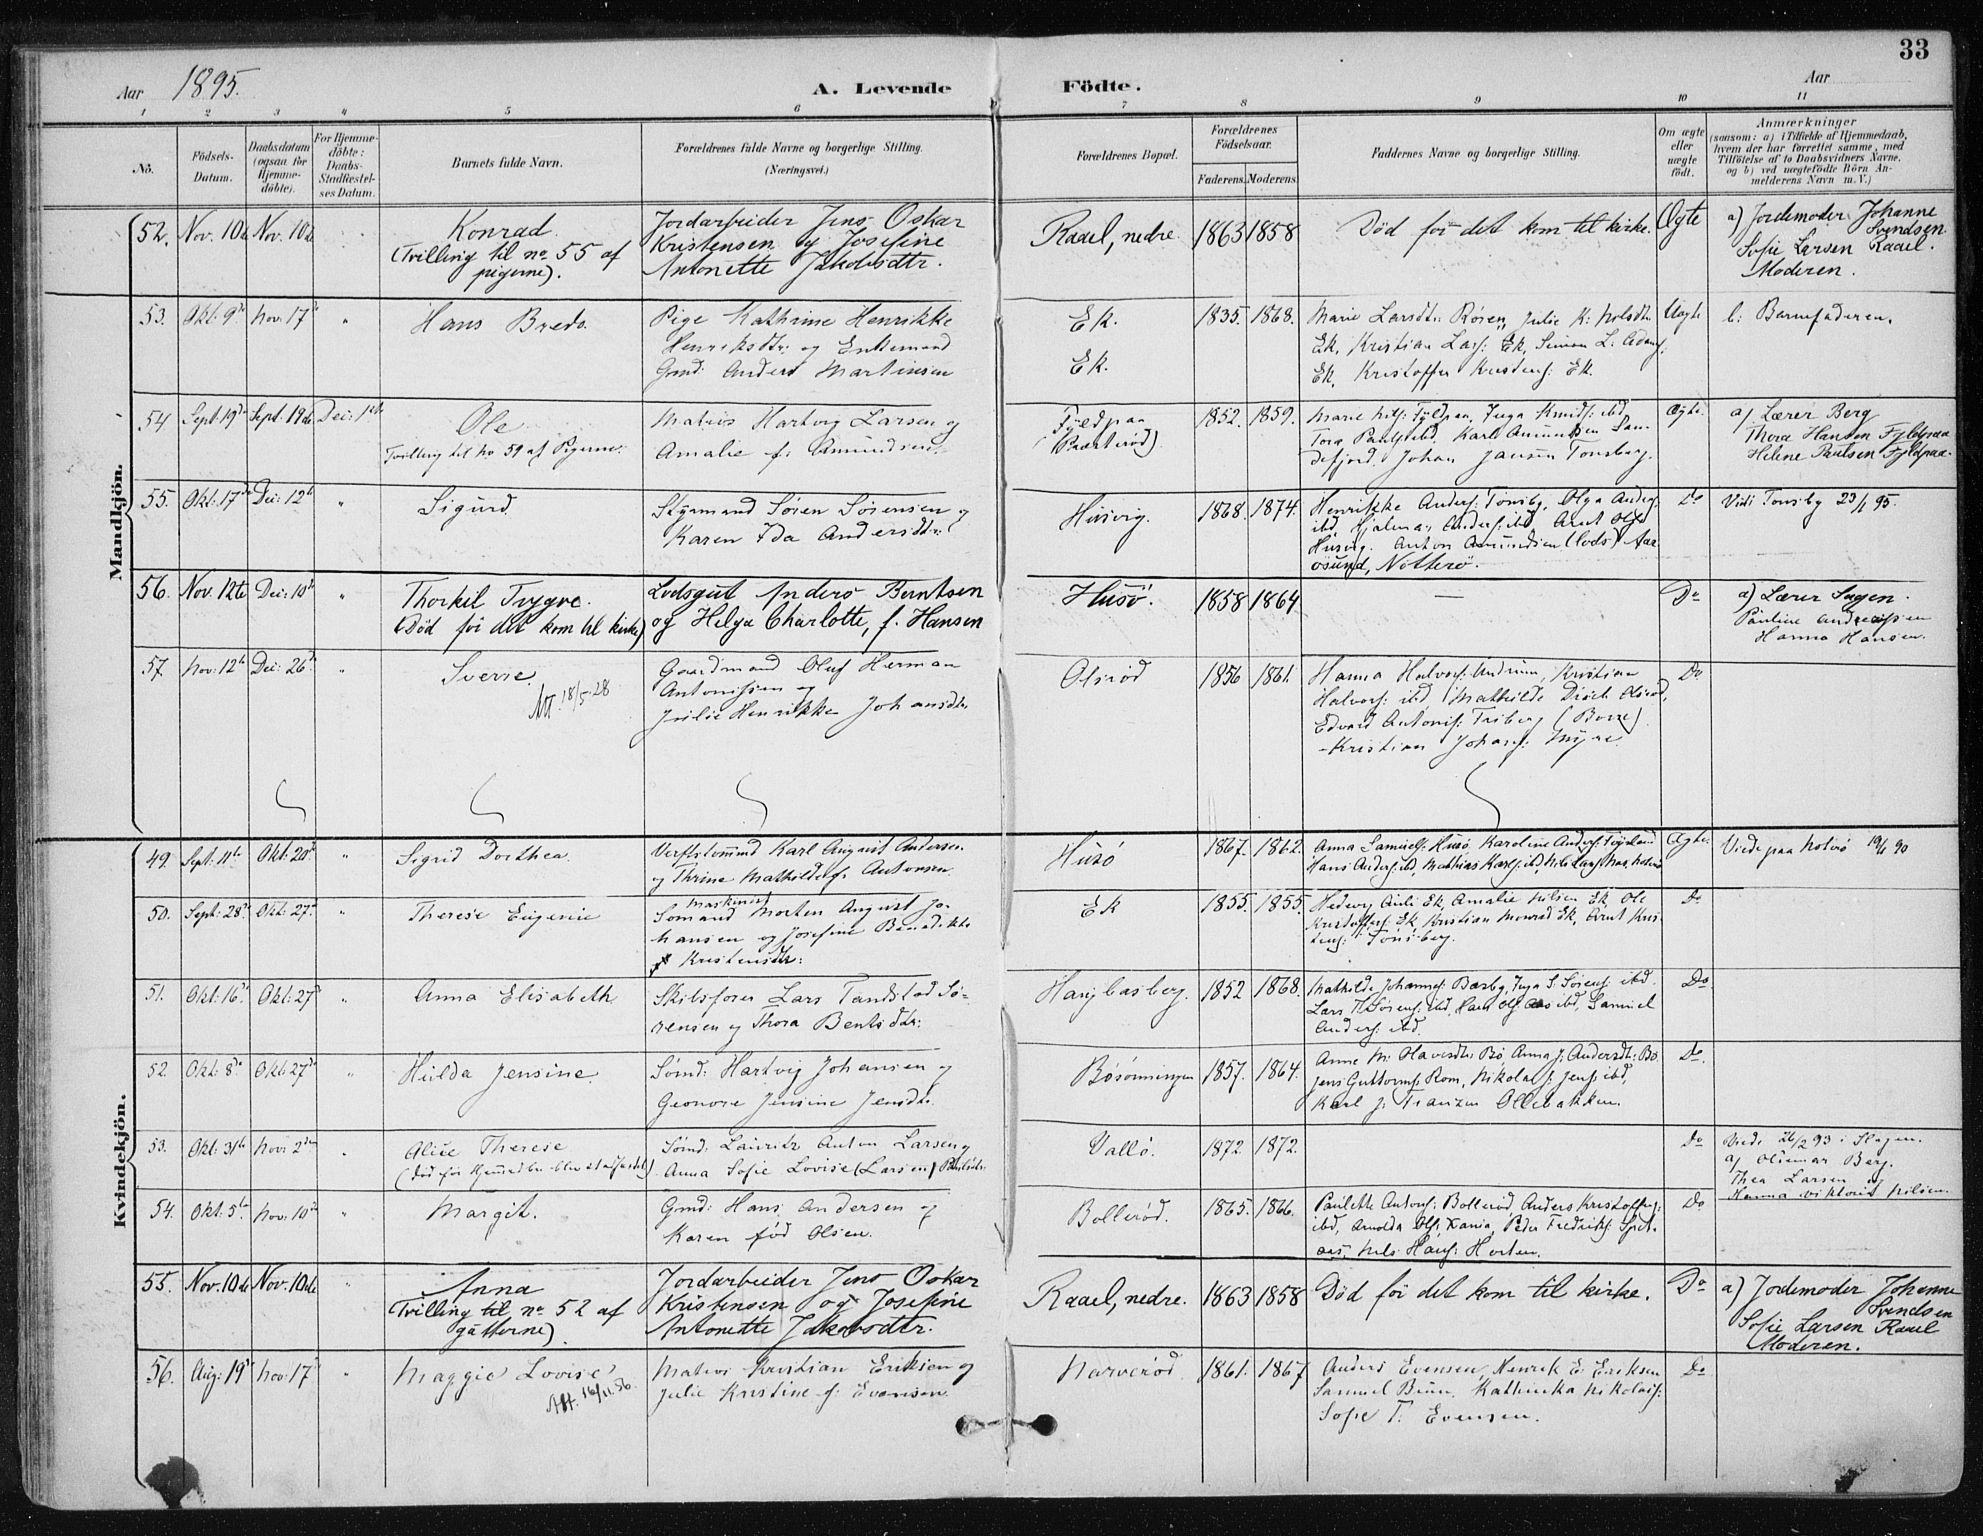 33
Aar 1895.
A. Levende Födte.
Aar
1 2 3 4 5 6 7 8 9 10 11
No.
Födsels-Datum.
Daabsdatum (ogsaa for Hjemmedöbte).
For Hjemmedöbte: Daabs-Stadfæstelses Datum.
Barnets fulde Navn.
Forældrenes fulde Navne og borgerlige Stilling. (Næringsvei.)
Forældrenes Bopæl.
Forældrenes Födselsaar.
Faderens. Moderens.
Faddernes Navne og borgerlige Stilling.
Om ægte eller uægte födt.
Anmærkninger
(saasom: a) i Tilfælde af Hjemmedaab, hvem der har forrettet samme, med Tilföielse af to Daabsvidners Navne, og b) ved uægtefödte Börn Anmelderens Navn m. V.)
Mandkjön.
52. Nov. 10de Nov. 10de
Konrad
(Tvilling til no. 55 af
pigerne).
Jordarbeider Jens Oskar
Kristensen og Josefine
Antonette Jakobsdtr.
Raael, nedre. 1863 1858
Död för det kom til kirke. Ægte
a) Jordemoder Johanne
Svendsen
Sofie Larsen Raael.
Moderen.
53. Okt. 9de Nov. 17de "
Hans Bredo.
Pige Kathrine Henrikke
Henriksdtr. og Enkemand
Gmd. Anders Martinsen
Ek.
Ek.
1835. 1868.
Marie Larsdtr. Røsen, Julie K. Nilsdtr.
Ek, Kristian Lars: Ek, Simon L.
Ek, Kristoffer Kristens: Ek.
Uægte
b: Barnefaderen.
54 Sept. 19de Sept. 19de Dec: 1ste
Ole
Tvilling til no 59 af Pigerne.
Matros Hartvig Larsen og
Amalie f. Amundsen
Fyldpaa
(Paasterød)
1852. 1859.
Marie Nils: Fyldpaa, Inga Knuds: ibd,
Tora Pauls: ibd, Karl Amundsen San-
defjord. Johan Jansen Tonsberg.
Ægte.
a) Lærer Berg
Thora Hansen Fyldpaa
Helene Paulsen Fyldpaa.
55. Okt: 17de Dec: 12te "
Sigurd.
Styrmand Sören Sörensen og
Karen Ida Andersdtr:
Husvig.
1868. 1874.
Henrikke Anders: Tonsbg, Olga Anders:
ibd, Hjalmar Anders: ibd, Arnt Ols:
Husvig. Anton Amundsen (Lods) Aar-
øsund, Nötterö.
Do
Viet Tonsbg 23/1 95.
56. Nov. 12te Dec: 10de "
Thorkil Trygve.
(Död för det kom til kirke)
Lodsgut Anders Berntsen
og Helga Charlotte, f. Hansen
Husö. 1858 1864
—
Do
a) Lærer Sagen.
Pauline Andreassen
Hanna Hansen.
57 Nov: 12te Dec: 26de "
Sverre.
Att. 18/5-28
Gaardmand Oluf Herman
Antonissen og
Julie Henrikke Johansdtr.
Olsrød
1856 1861.
Hanna Halvors: Undrum, Kristian
Halvors: ibd, Mathilde Olsrød,
Edvard Antonis: Friberg (Borre)
Kristian Johans: Myre.
Do
Kvindekjön.
49. Sept: 11te Okt: 20de "
Sigrid Dorthea.
Verftstömmd Karl August Andersen
og Thrine Mathilde f. Antonsen.
Husö
1867. 1862.
Anna Samuels: Husö, Karoline Anders: Föynland
Hans Anders: ibd, Mathias Karls: ibd, Nils Lars:
Ægte.
Viede paa Noterö 19/1 90
50. Sept: 28de Okt: 27de "
Therese Eugenie
Maskinist
Sömand Morten August Jo-
hansen og Josefine Benedikte
Kristensdtr:
Ek
1855. 1855.
Hedevig Ek, Amalie Nilsen Ek, Ole
Kristoffers: Ek, Kristian Monrad Ek, Arnt Kris-
tens: Tönsberg.
Do
51. Okt: 16de Okt: 27de "
Anna Elisabeth
Skibsförer Lars Tandstad Sö-
rensen og Thora Berntsdtr:
Haugbasberg.
1852 1868.
Mathilde Johannes: Basbg, Inga S. Sörens: ibd.
Lars T. Sörens: ibd, Hans Ols: Aas ibd, Samuel
Anders: ibd.
Do
52. Okt: 8de Okt: 27de "
Hulda Jensine.
Sömd: Hartvig Johansen og
Geonore Jensine Jensdtr.
Bösönningen
1857. 1864.
Anne M. Olavesdtr: Bö, Anna J. Andersdtr: Bö
Jens Guttorms: Rom, Nikolai J. Jens: ibd,
Karl J. Franzen Ollebakken.
Do.
53. Okt: 31te Nov: 2den "
Alice Therese
(död för hjemmedaaben blev stadfæstet)
Sömd: Lauritz Anton Larsen og
Anna Sofie Lovise (Larsen)
Vallö.
1872. 1872.
Do
Viede 26/2 93 i Slagen.
a) Olimar Berg.
Thea Larsen og
Hanna Viktoria Nilsen.
54. Okt: 5te Nov: 10de "
Margit.
Gmd: Hans Andersen og
Karen född Olsen.
Bollerød.
1865. 1866.
Paulette Antons: Bollerød, Anders Kristoffers:
ibd, Arnolda Ols: Xania, Peder Fredriks:
Nils Hans: Horten.
Do
55. Nov. 10de Nov. 10de "
Anna
(Tvilling til no. 52 af
gutterne).
Jordarbeider Jens Oskar
Kristensen og Josefine
Antonette Jakobsdtr.
Raael, nedre. 1863 1858
Död för det kom til kirke. Do
a) Jordemoder Johanne
Svendsen
Sofie Larsen Raael
Moderen.
56. Aug: 19de Nov: 17de "
Maggie Lovise
Att. 16/11.56.
Matros Kristian Eriksen og
Julie Kristine f. Evensen.
Narverød
1861. 1867
Anders Evensen, Henrik E. Eriksen
Samuel Bruun, Kathinka Nikolais:
Sofie T. Evensen.
Do